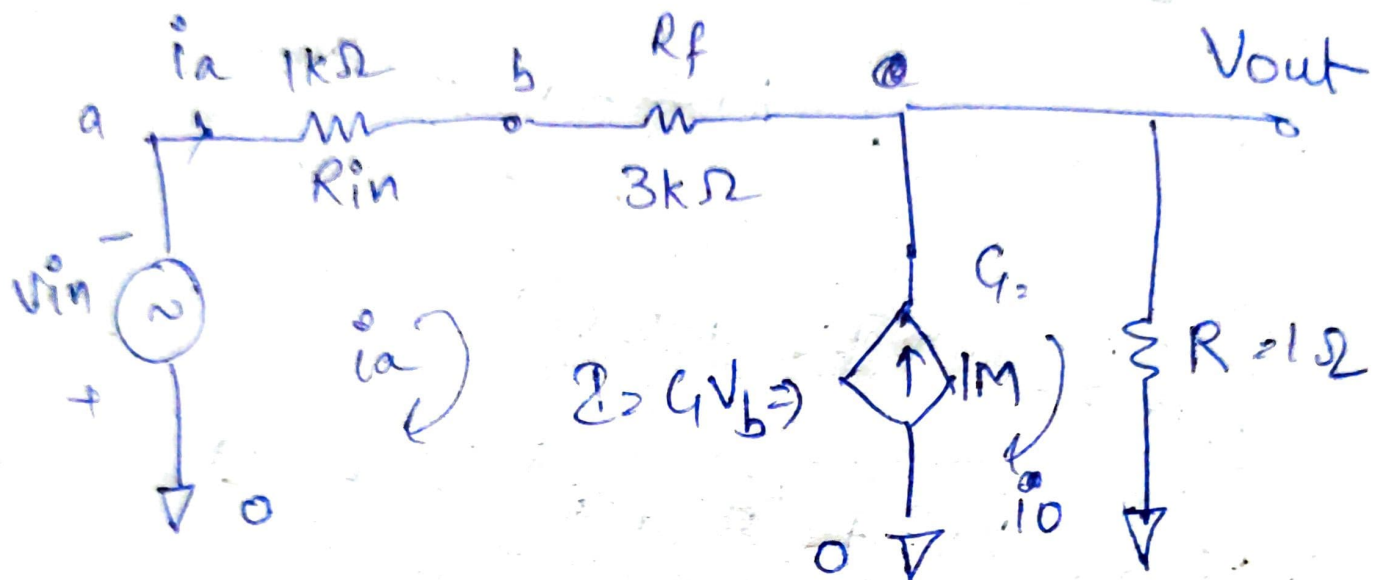 ia 1kΩ b Rf Vout
a
Rin 3kΩ
-
Vin
~
+
ia
G=
I= GVb⇒ 1M
R=1Ω
io
0
0